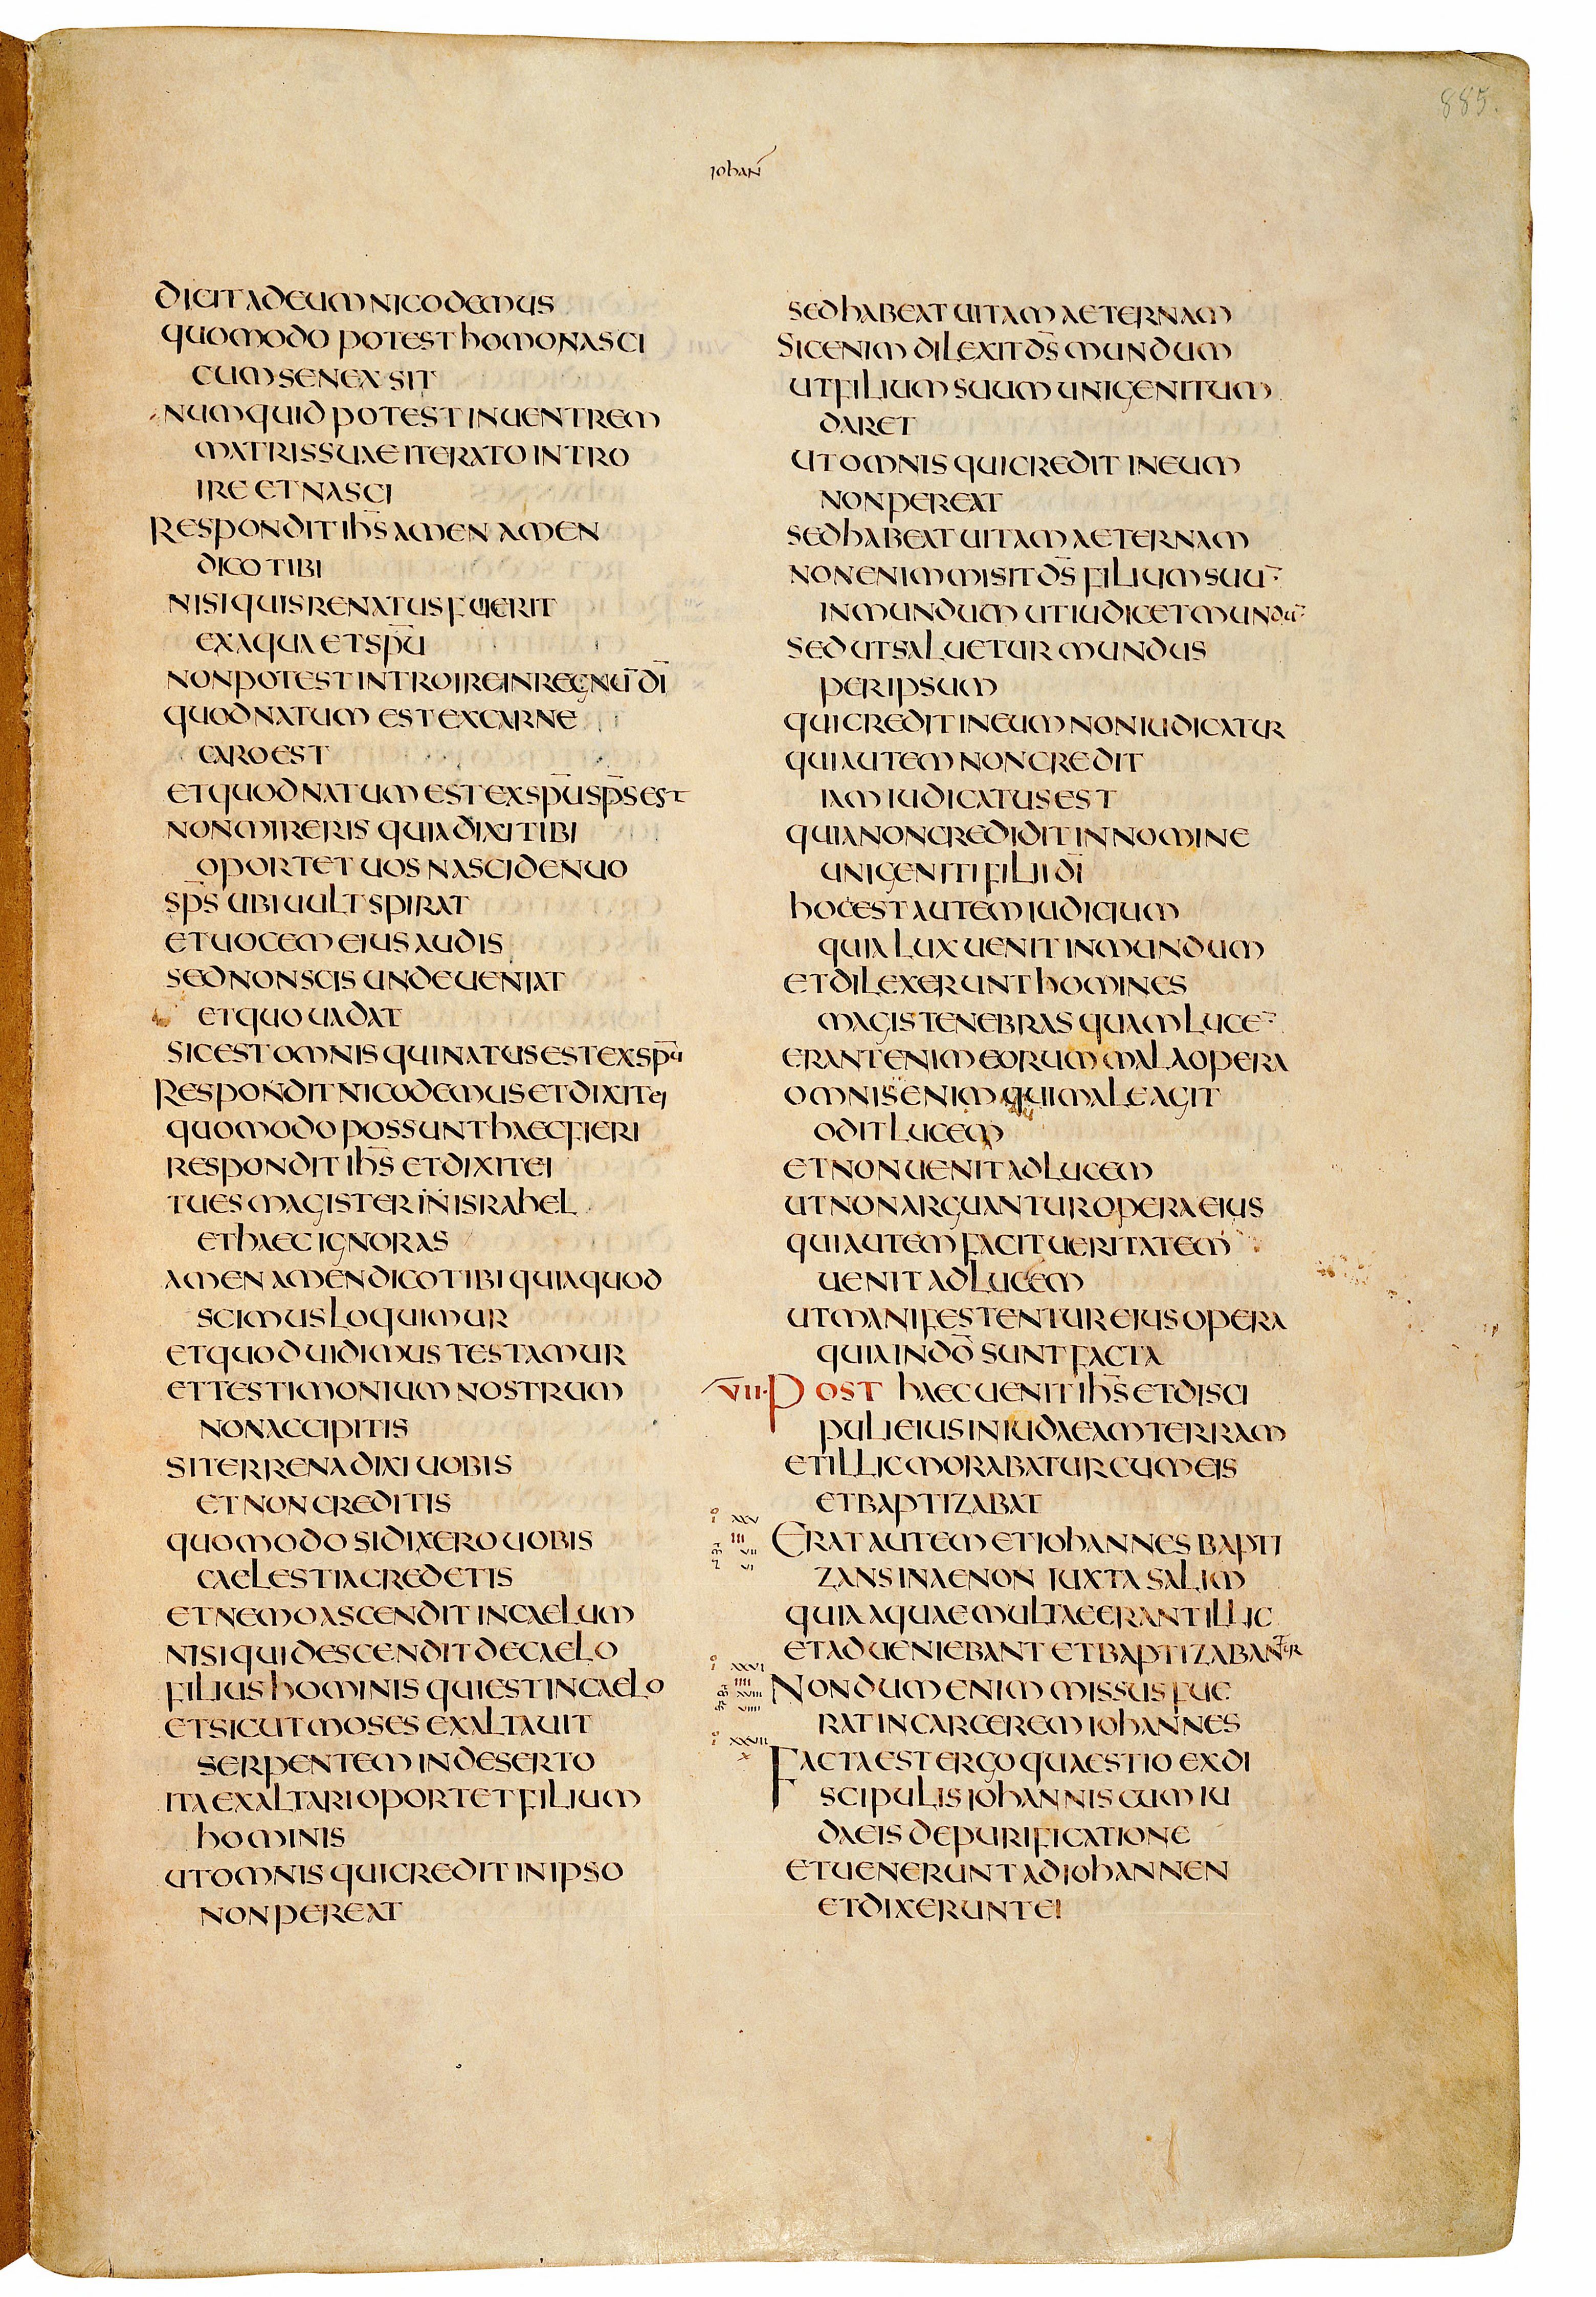 885.
iohan̄
DICIT AD EUM NICODEMUS
QUOMODO POTEST HOMO NASCI
CUM SENEX SIT
NUMQUID POTEST IN UENTREM
MATRIS SUAE ITERATO INTRO
IRE ET NASCI
RESPONDIT IHS̄ AMEN AMEN
DICO TIBI
NISI QUIS RENATUS FUERIT
EX AQUA ET SPŪ
NON POTEST INTROIRE IN REGNŪ DĪ
QUOD NATUM EST EX CARNE
CARO EST
ET QUOD NATUM EST EX SPŪ SPS̄ EST
NON MIRERIS QUIA DIXI TIBI
OPORTET UOS NASCI DENUO
SPS̄ UBI UULT SPIRAT
ET UOCEM EIUS AUDIS
SED NON SCIS UNDE UENIAT
ET QUO UADAT
SIC EST OMNIS QUI NATUS EST EX SPŪ
RESPONDIT NICODEMUS ET DIXIT EI
QUOMODO POSSUNT HAEC FIERI
RESPONDIT IHS̄ ET DIXIT EI
TU ES MAGISTER IN ISRAHEL
ET HAEC IGNORAS
AMEN AMEN DICO TIBI QUIA QUOD
SCIMUS LOQUIMUR
ET QUOD UIDIMUS TESTAMUR
ET TESTIMONIUM NOSTRUM
NON ACCIPITIS
SI TERRENA DIXI UOBIS
ET NON CREDITIS
QUOMODO SI DIXERO UOBIS
CAELESTIA CREDETIS
ET NEMO ASCENDIT IN CAELUM
NISI QUI DESCENDIT DE CAELO
FILIUS HOMINIS QUI EST IN CAELO
ET SICUT MOSES EXALTAUIT
SERPENTEM IN DESERTO
ITA EXALTARI OPORTET FILIUM
HOMINIS
UT OMNIS QUI CREDIT IN IPSO
NON PEREAT
SED HABEAT UITAM AETERNAM
SIC ENIM DILEXIT DS̄ MUNDUM
UT FILIUM SUUM UNIGENITUM
DARET
UT OMNIS QUI CREDIT IN EUM
NON PEREAT
SED HABEAT UITAM AETERNAM
NON ENIM MISIT DS̄ FILIUM SUŪ
IN MUNDUM UT IUDICET MUNDŪ
SED UT SALUETUR MUNDUS
PER IPSUM
QUI CREDIT IN EUM NON IUDICATUR
QUI AUTEM NON CREDIT
IAM IUDICATUS EST
QUIA NON CREDIDIT IN NOMINE
UNIGENITI FILII DĪ
HOC EST AUTEM IUDICIUM
QUIA LUX UENIT IN MUNDUM
ET DILEXERUNT HOMINES
MAGIS TENEBRAS QUAM LUCĒ
ERANT ENIM EORUM MALA OPERA
OMNIS ENIM QUI MALE AGIT
ODIT LUCEM
ET NON UENIT AD LUCEM
UT NON ARGUANTUR OPERA EIUS
QUI AUTEM FACIT UERITATEM
UENIT AD LUCEM
UT MANIFESTENTUR EIUS OPERA
QUIA IN DŌ SUNT FACTA
VII· POST HAEC UENIT IHS̄ ET DISCI
PULI EIUS IN IUDAEAM TERRAM
ET ILLIC MORABATUR CUM EIS
ET BAPTIZABAT
XXV
III
VII
VI
ERAT AUTEM ET IOHANNES BAPTI
ZANS IN AENON IUXTA SALIM
QUIA AQUAE MULTAE ERANT ILLIC
ET ADUENIEBANT ET BAPTIZABANTUR
XXVI
IIII
XVIII
VIIII
NONDUM ENIM MISSUS FUE
RAT IN CARCEREM IOHANNES
XXVII
X
FACTA EST ERGO QUAESTIO EX DI
SCIPULIS IOHANNIS CUM IU
DAEIS DE PURIFICATIONE
ET UENERUNT AD IOHANNEN
ET DIXERUNT EI